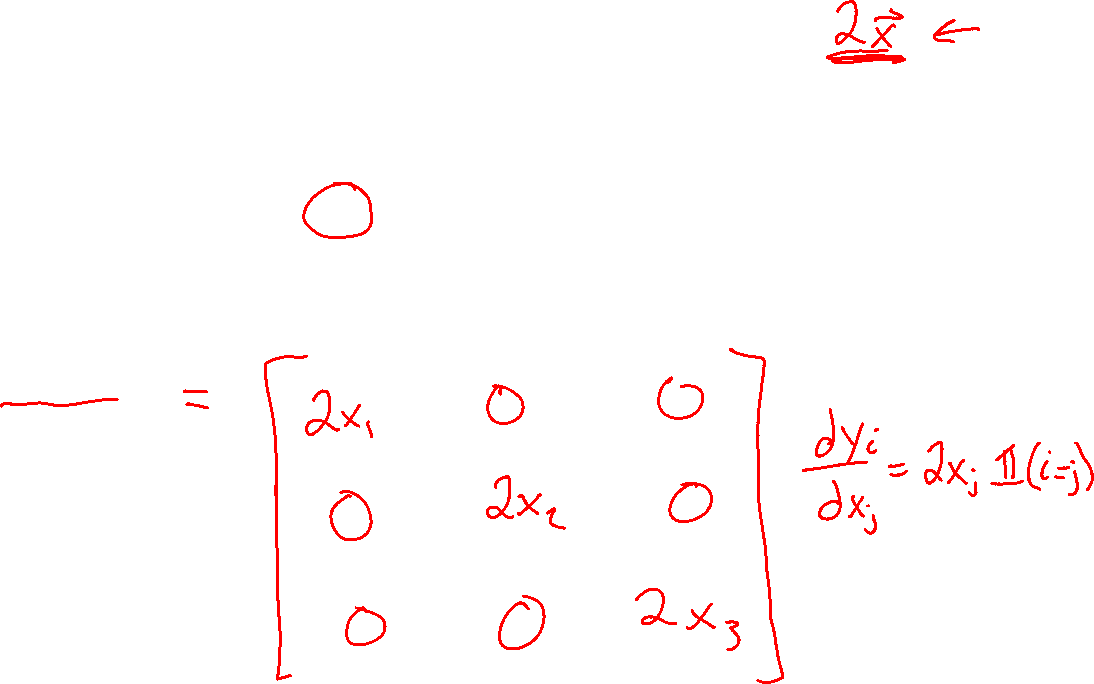 2x⃗ ←
0
— = [ 2x₁ 0 0
0 2x₂ 0
0 0 2x₃ ]
dyᵢ/dxⱼ = 2xⱼ 𝟙(i=j)